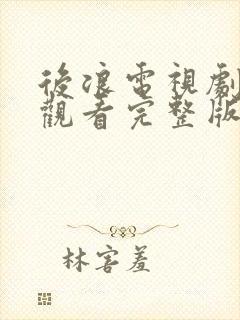 後浪電視劇
觀看完整版
林害羞